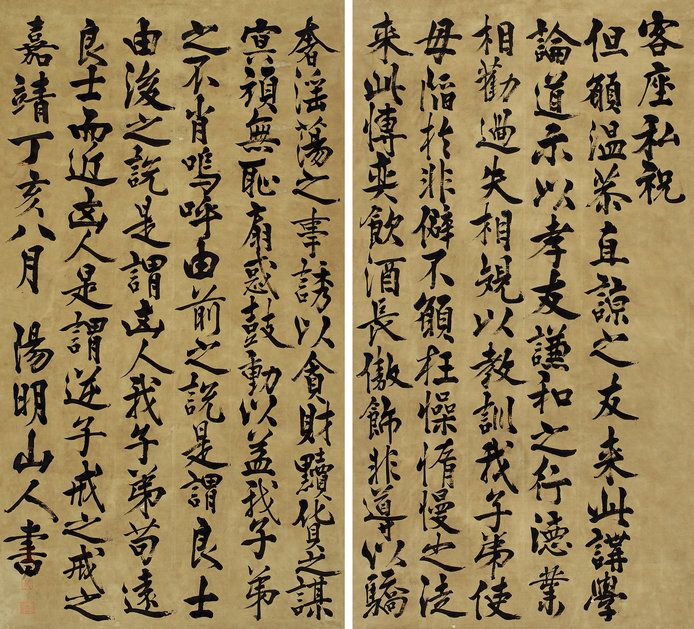 客座私祝
但願溫恭直諒之友来此講學
論道示以孝友謙和之行德業
相勸過失相規以教訓我子弟使
毋陷於非僻不願狂懆惰慢之徒
来此博奕飲酒長傲飾非導以驕
奢淫蕩之事誘以貪財黷貨之謀
冥頑無恥扇惑鼓動以益我子弟
之不肖嗚呼由前之說是謂良士
由後之說是謂凶人我子弟苟遠
良士而近凶人是謂逆子戒之戒之
嘉靖丁亥八月 陽明山人書